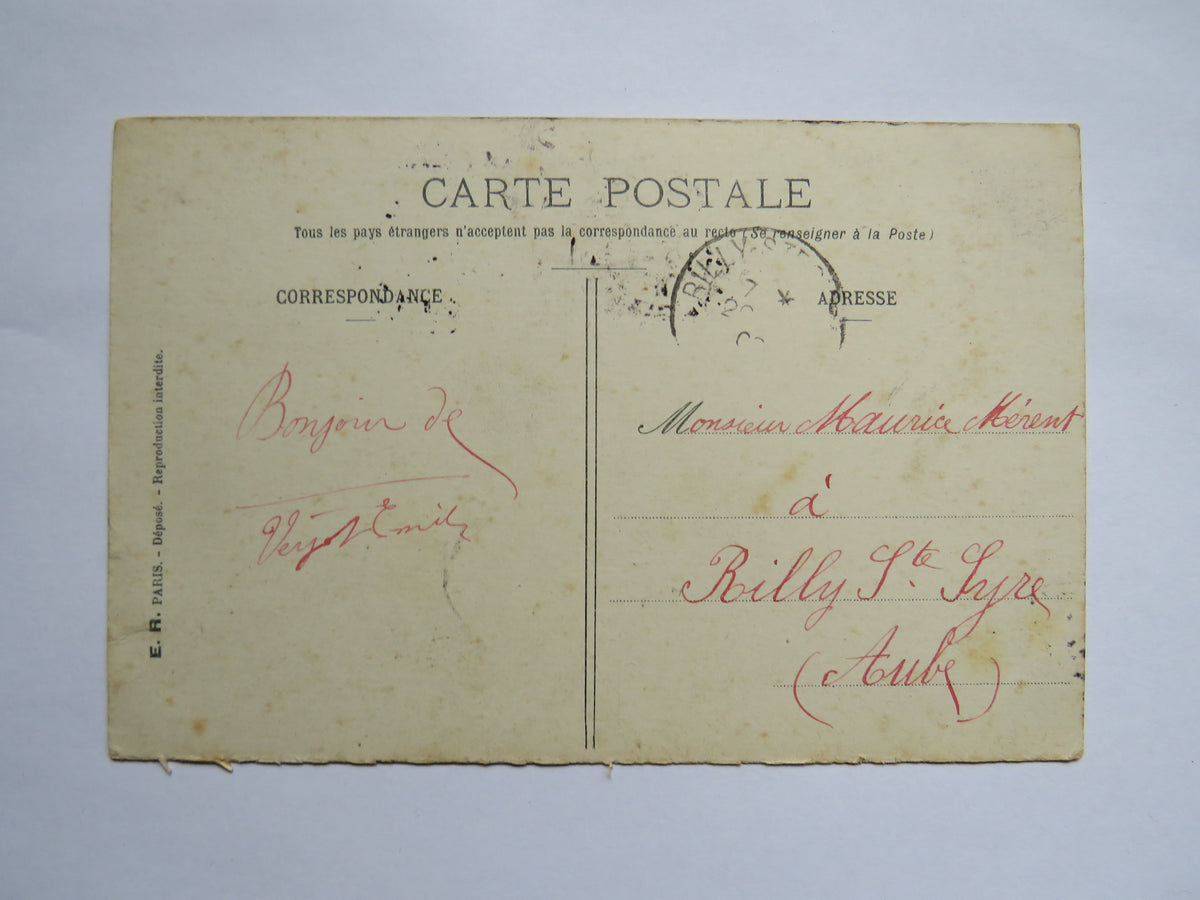 CARTE POSTALE
Tous les pays étrangers n'acceptent pas la correspondance au recto (Se renseigner à la Poste)
CORRESPONDANCE
Bonjour de
Emile
E. R. PARIS. - Déposé. - Reproduction interdite.
RILLY-STE-S
ADRESSE
Monsieur Maurice Mérent
à
Rilly Ste Syre
(Aube)